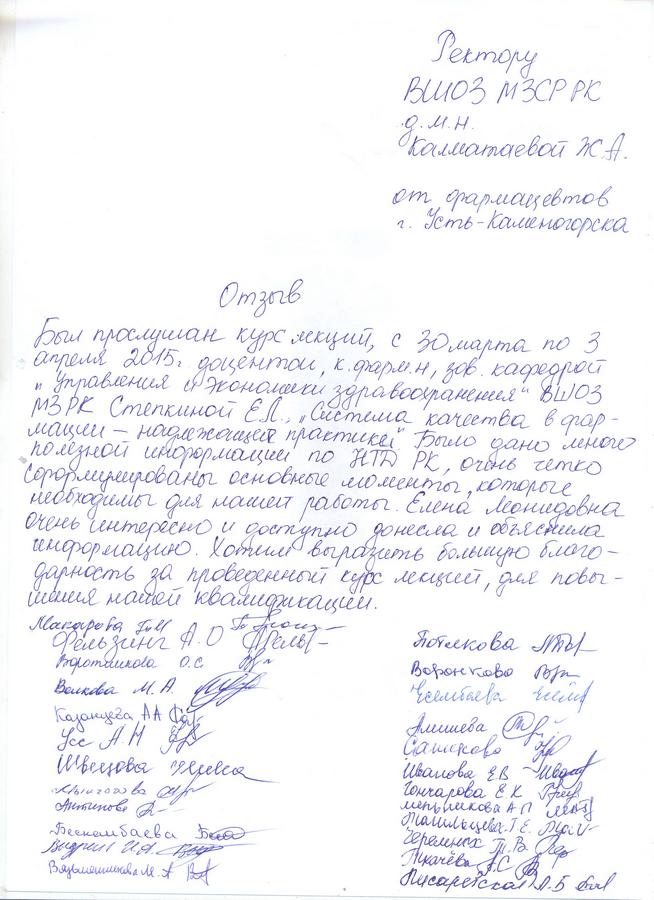 Ректору
ВШОЗ МЗСР РК
д.м.н.
Калматаевой Ж.А.
от фармацевтов
г. Усть-Каменогорска
Отзыв
Был прослушан курс лекций, с 30 марта по 3
апреля 2015г. доцентом, к.фарм.н, зав. кафедрой
„Управления и Экономики здравоохранения" ВШОЗ
МЗ РК Степкиной Е.Л., „Система качества в фар-
мации – надлежащей практики" Было дано много
полезной информации по НТД РК, очень четко
сформулированы основные моменты, которые
необходимы для нашей работы. Елена Леонидовна
очень интересно и доступно донесла и объяснила
информацию. Хотим выразить большую благо-
дарность за проведенный курс лекций, для повы-
шения нашей квалификации.
Макарова
Фельзинг А.О
Воротникова О.С
Волкова М.А.
Казанцева АА
Усс А.Н
Швецова
Антипова
Бескембаева
Вязьмешинова М.А
Потякова
Воронкова
Есембаева
Алишева
Иванова ЕВ
Гончарова Е.К
Мельникова АП
Т.Е.
Т.В.
Ткачёва А.С
Писаревская Л.Б